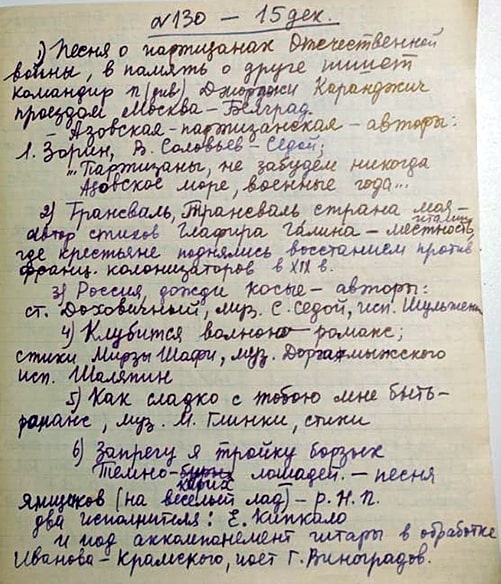 №130 — 15 дек.
1) Песня о партизанах Отечественной
войны, в память о друге пишет
командир п(див) Джорджи Каранджич
проездом Москва – Белград.
– Азовская-партизанская – авторы:
1. Зорин, В. Соловьев-Седой;
„Партизаны, не забудем никогда
Азовское море, военные года...
2) Трансваль, Трансваль страна моя –
автор стихов Глафира Галина – местность,
где крестьяне поднялись восстанием против
франц. колонизаторов в XIX в.
3) Россия дожди косые – авторы:
ст. Доховичный, муз. С. Седой, исп. Шульжен
4) Клубится волною – романс;
стихи Мирзы Шафи, муз.
исп. Шаляпин
5) Как сладко с тобою мне быть –
романс, муз. М. Глинки, стихи
6) Запрегу я тройку борзых
Темно-бурых лошадей. – песня
карих
ямщиков (на веселый лад) – р. н. п.
два исполнителя: Е. Кипкало
и под аккомпанемент гитары в обработке
Иванова-Крамского, поет Г. Виноградов.